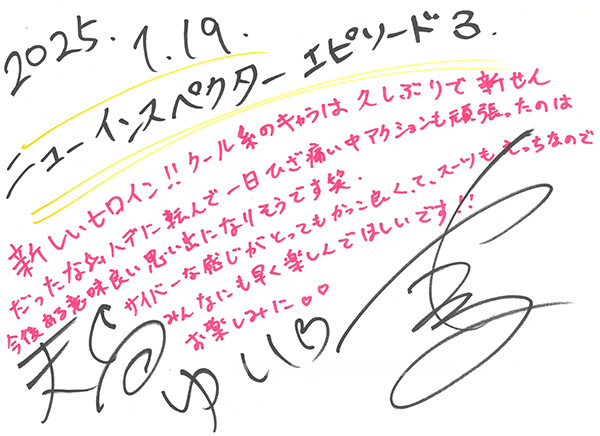 2025.1.19.
ニューインスペクター エピソード3.
新しいヒロイン!! クール系のキャラは 久しぶりで 新せん
だったなぁ! ハデに転んで一日ひざ痛い中アクションも頑張ったのは
今後ある意味良い思い出になりそうです笑.
サイバーな感じがとってもかっこ良くて、スーツもえっちなので
みんなにも早く楽しんでほしいです!!
お楽しみに♡♡
天宮
ゆい